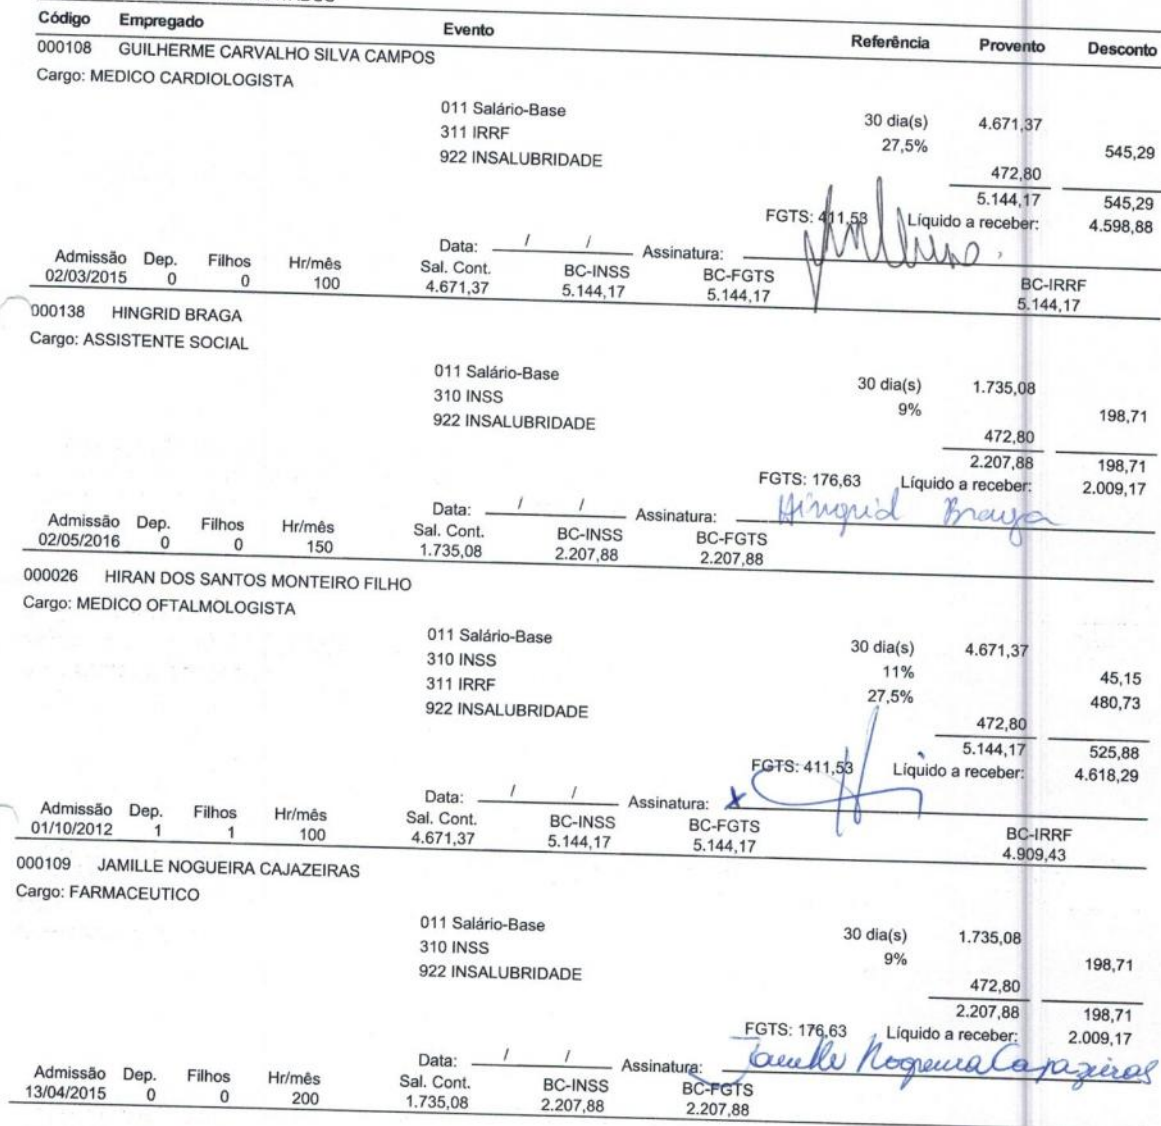 Código Empregado Evento Referência Provento Desconto
000108 GUILHERME CARVALHO SILVA CAMPOS
Cargo: MEDICO CARDIOLOGISTA
011 Salário-Base 30 dia(s) 4.671,37
311 IRRF 27,5% 545,29
922 INSALUBRIDADE 472,80
5.144,17 545,29
FGTS: 411,53 Líquido a receber: 4.598,88
Data: / / Assinatura:
Admissão Dep. Filhos Hr/mês Sal. Cont. BC-INSS BC-FGTS BC-IRRF
02/03/2015 0 0 100 4.671,37 5.144,17 5.144,17 5.144,17
000138 HINGRID BRAGA
Cargo: ASSISTENTE SOCIAL
011 Salário-Base 30 dia(s) 1.735,08
310 INSS 9% 198,71
922 INSALUBRIDADE 472,80
2.207,88 198,71
FGTS: 176,63 Líquido a receber: 2.009,17
Data: / / Assinatura: Hingrid Braga
Admissão Dep. Filhos Hr/mês Sal. Cont. BC-INSS BC-FGTS
02/05/2016 0 0 150 1.735,08 2.207,88 2.207,88
000026 HIRAN DOS SANTOS MONTEIRO FILHO
Cargo: MEDICO OFTALMOLOGISTA
011 Salário-Base 30 dia(s) 4.671,37
310 INSS 11% 45,15
311 IRRF 27,5% 480,73
922 INSALUBRIDADE 472,80
5.144,17 525,88
FGTS: 411,53 Líquido a receber: 4.618,29
Data: / / Assinatura: x
Admissão Dep. Filhos Hr/mês Sal. Cont. BC-INSS BC-FGTS BC-IRRF
01/10/2012 1 1 100 4.671,37 5.144,17 5.144,17 4.909,43
000109 JAMILLE NOGUEIRA CAJAZEIRAS
Cargo: FARMACEUTICO
011 Salário-Base 30 dia(s) 1.735,08
310 INSS 9% 198,71
922 INSALUBRIDADE 472,80
2.207,88 198,71
FGTS: 176,63 Líquido a receber: 2.009,17
Data: / / Assinatura: Jamille Nogueira Cajazeiras
Admissão Dep. Filhos Hr/mês Sal. Cont. BC-INSS BC-FGTS
13/04/2015 0 0 200 1.735,08 2.207,88 2.207,88